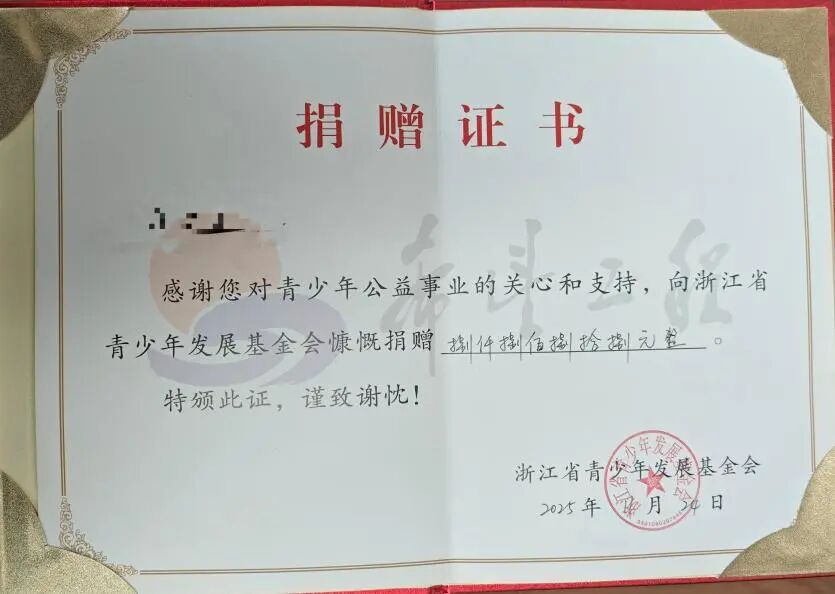 捐赠证书
感谢您对青少年公益事业的关心和支持，向浙江省
青少年发展基金会慷慨捐赠 捌仟捌佰捌拾捌元整 。
特颁此证，谨致谢忱！
浙江省青少年发展基金会
2025年 月24日